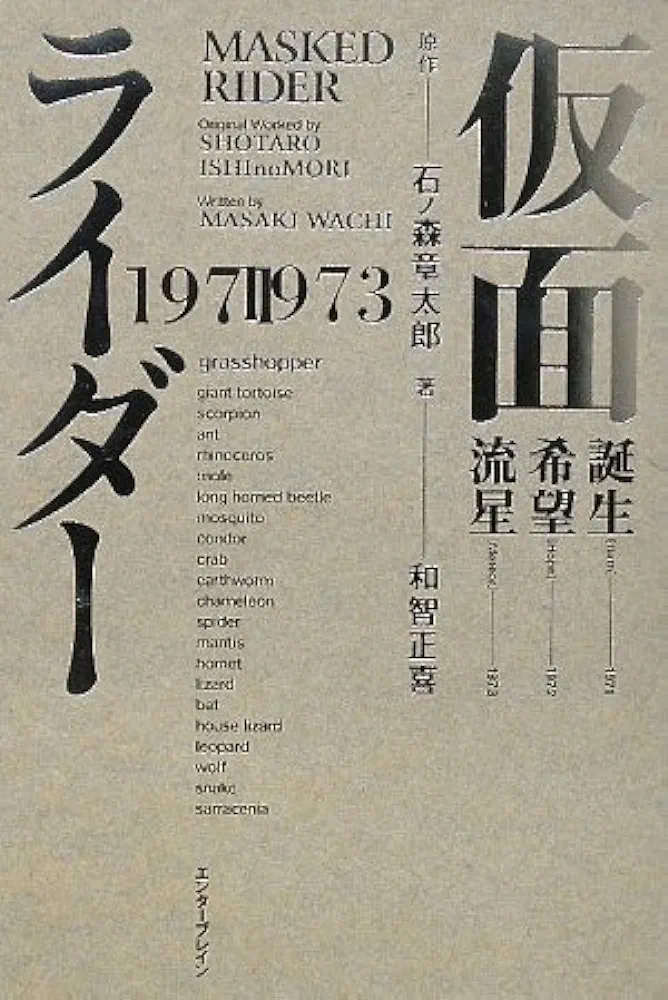 仮面
ライダー
MASKED
RIDER
Original Worked by
SHOTARO
ISHInoMORI
Written by
MASAKI WACHI
1971-1973
原作 石ノ森章太郎 著 和智正喜
誕生 1971
希望 1972
流星 1973
grasshopper
giant tortoise
scorpion
ant
rhinoceros
mole
long horned beetle
mosquito
condor
crab
earthworm
chameleon
spider
mantis
hornet
lizard
bat
house lizard
leopard
wolf
snake
sarracenia
エンターブレイン